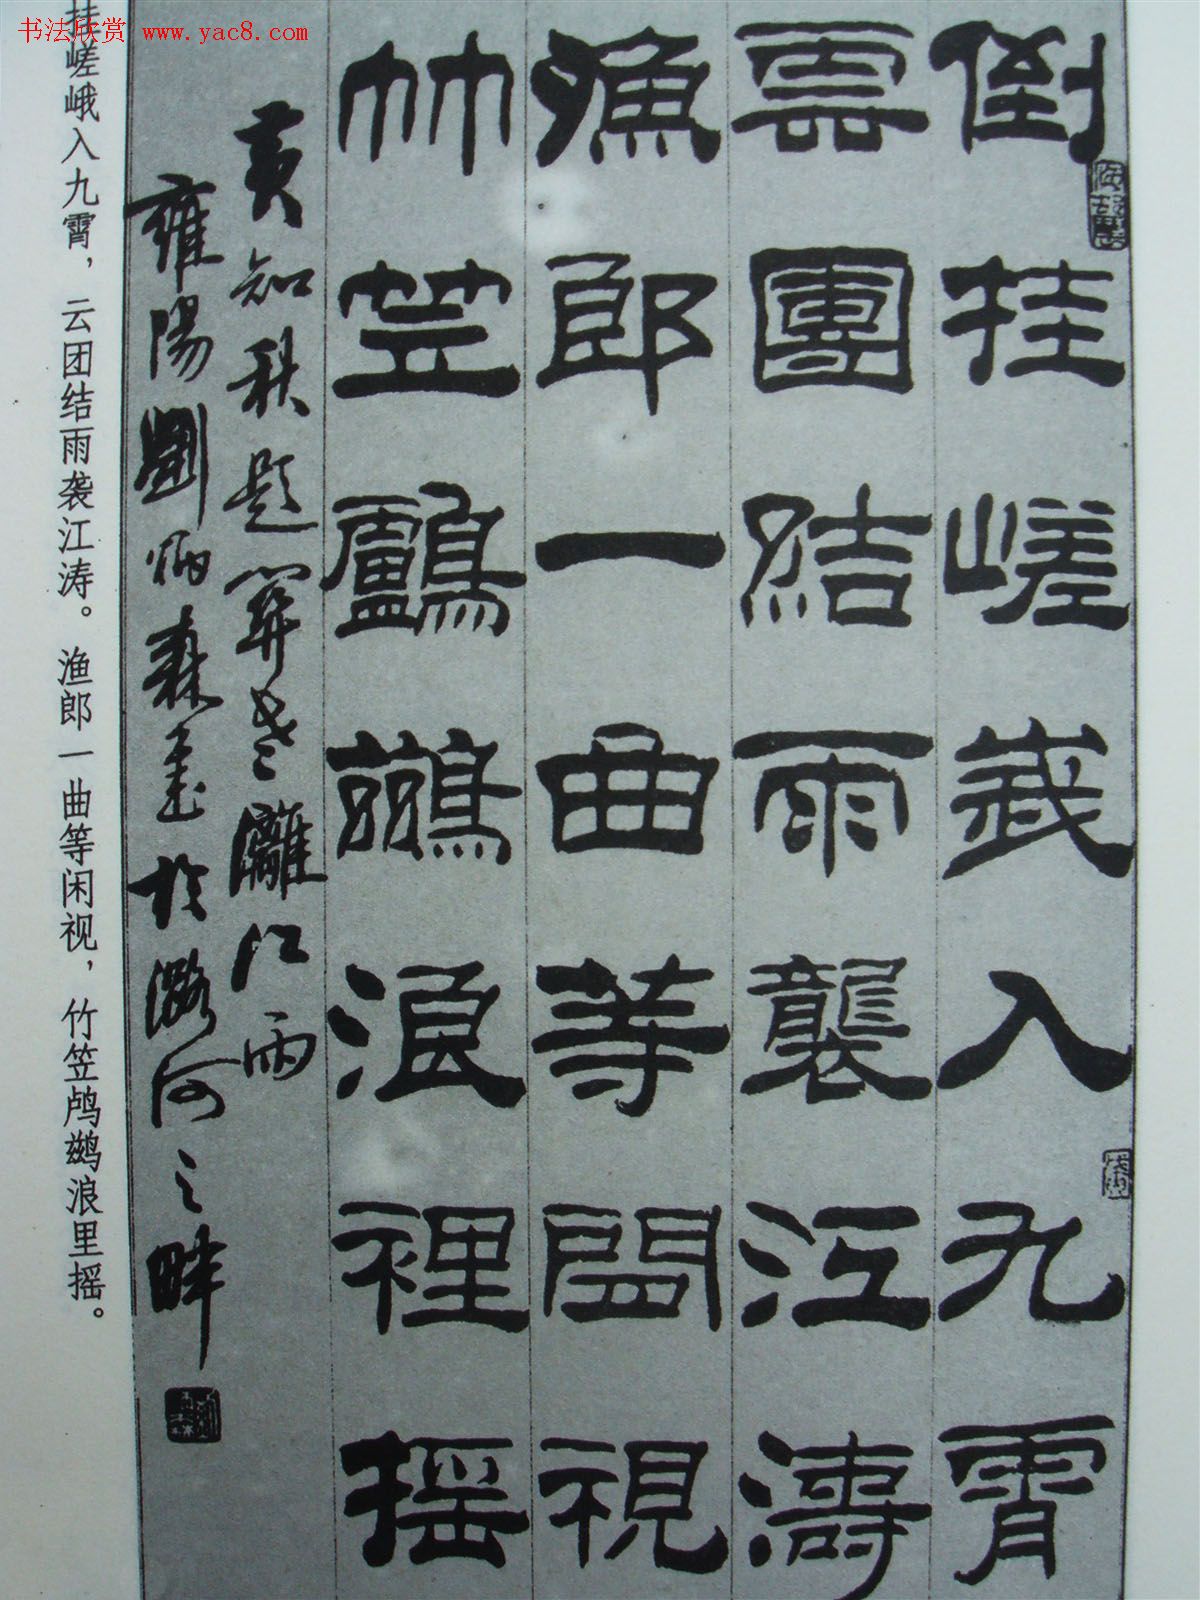 书法欣赏 www.yac8.com
倒挂嵯峨入九霄
雲團結雨襲江濤
漁郎一曲等閒視
竹笠鸕鷀浪裡摇
黄知秋題畫意灕江雨
雍陽劉炳森書於潞河之畔
挂嵯峨入九霄，云团结雨袭江涛。渔郎一曲等闲视，竹笠鸬鹚浪里摇。